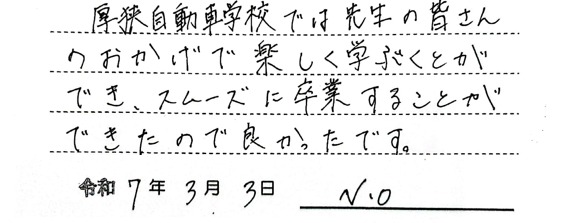 厚狭自動車学校では先生の皆さん
のおかげで楽しく学ぶくとが
でき、スムーズに卒業することが
できたので良かったです。
令和 7年 3月 3日 N.O